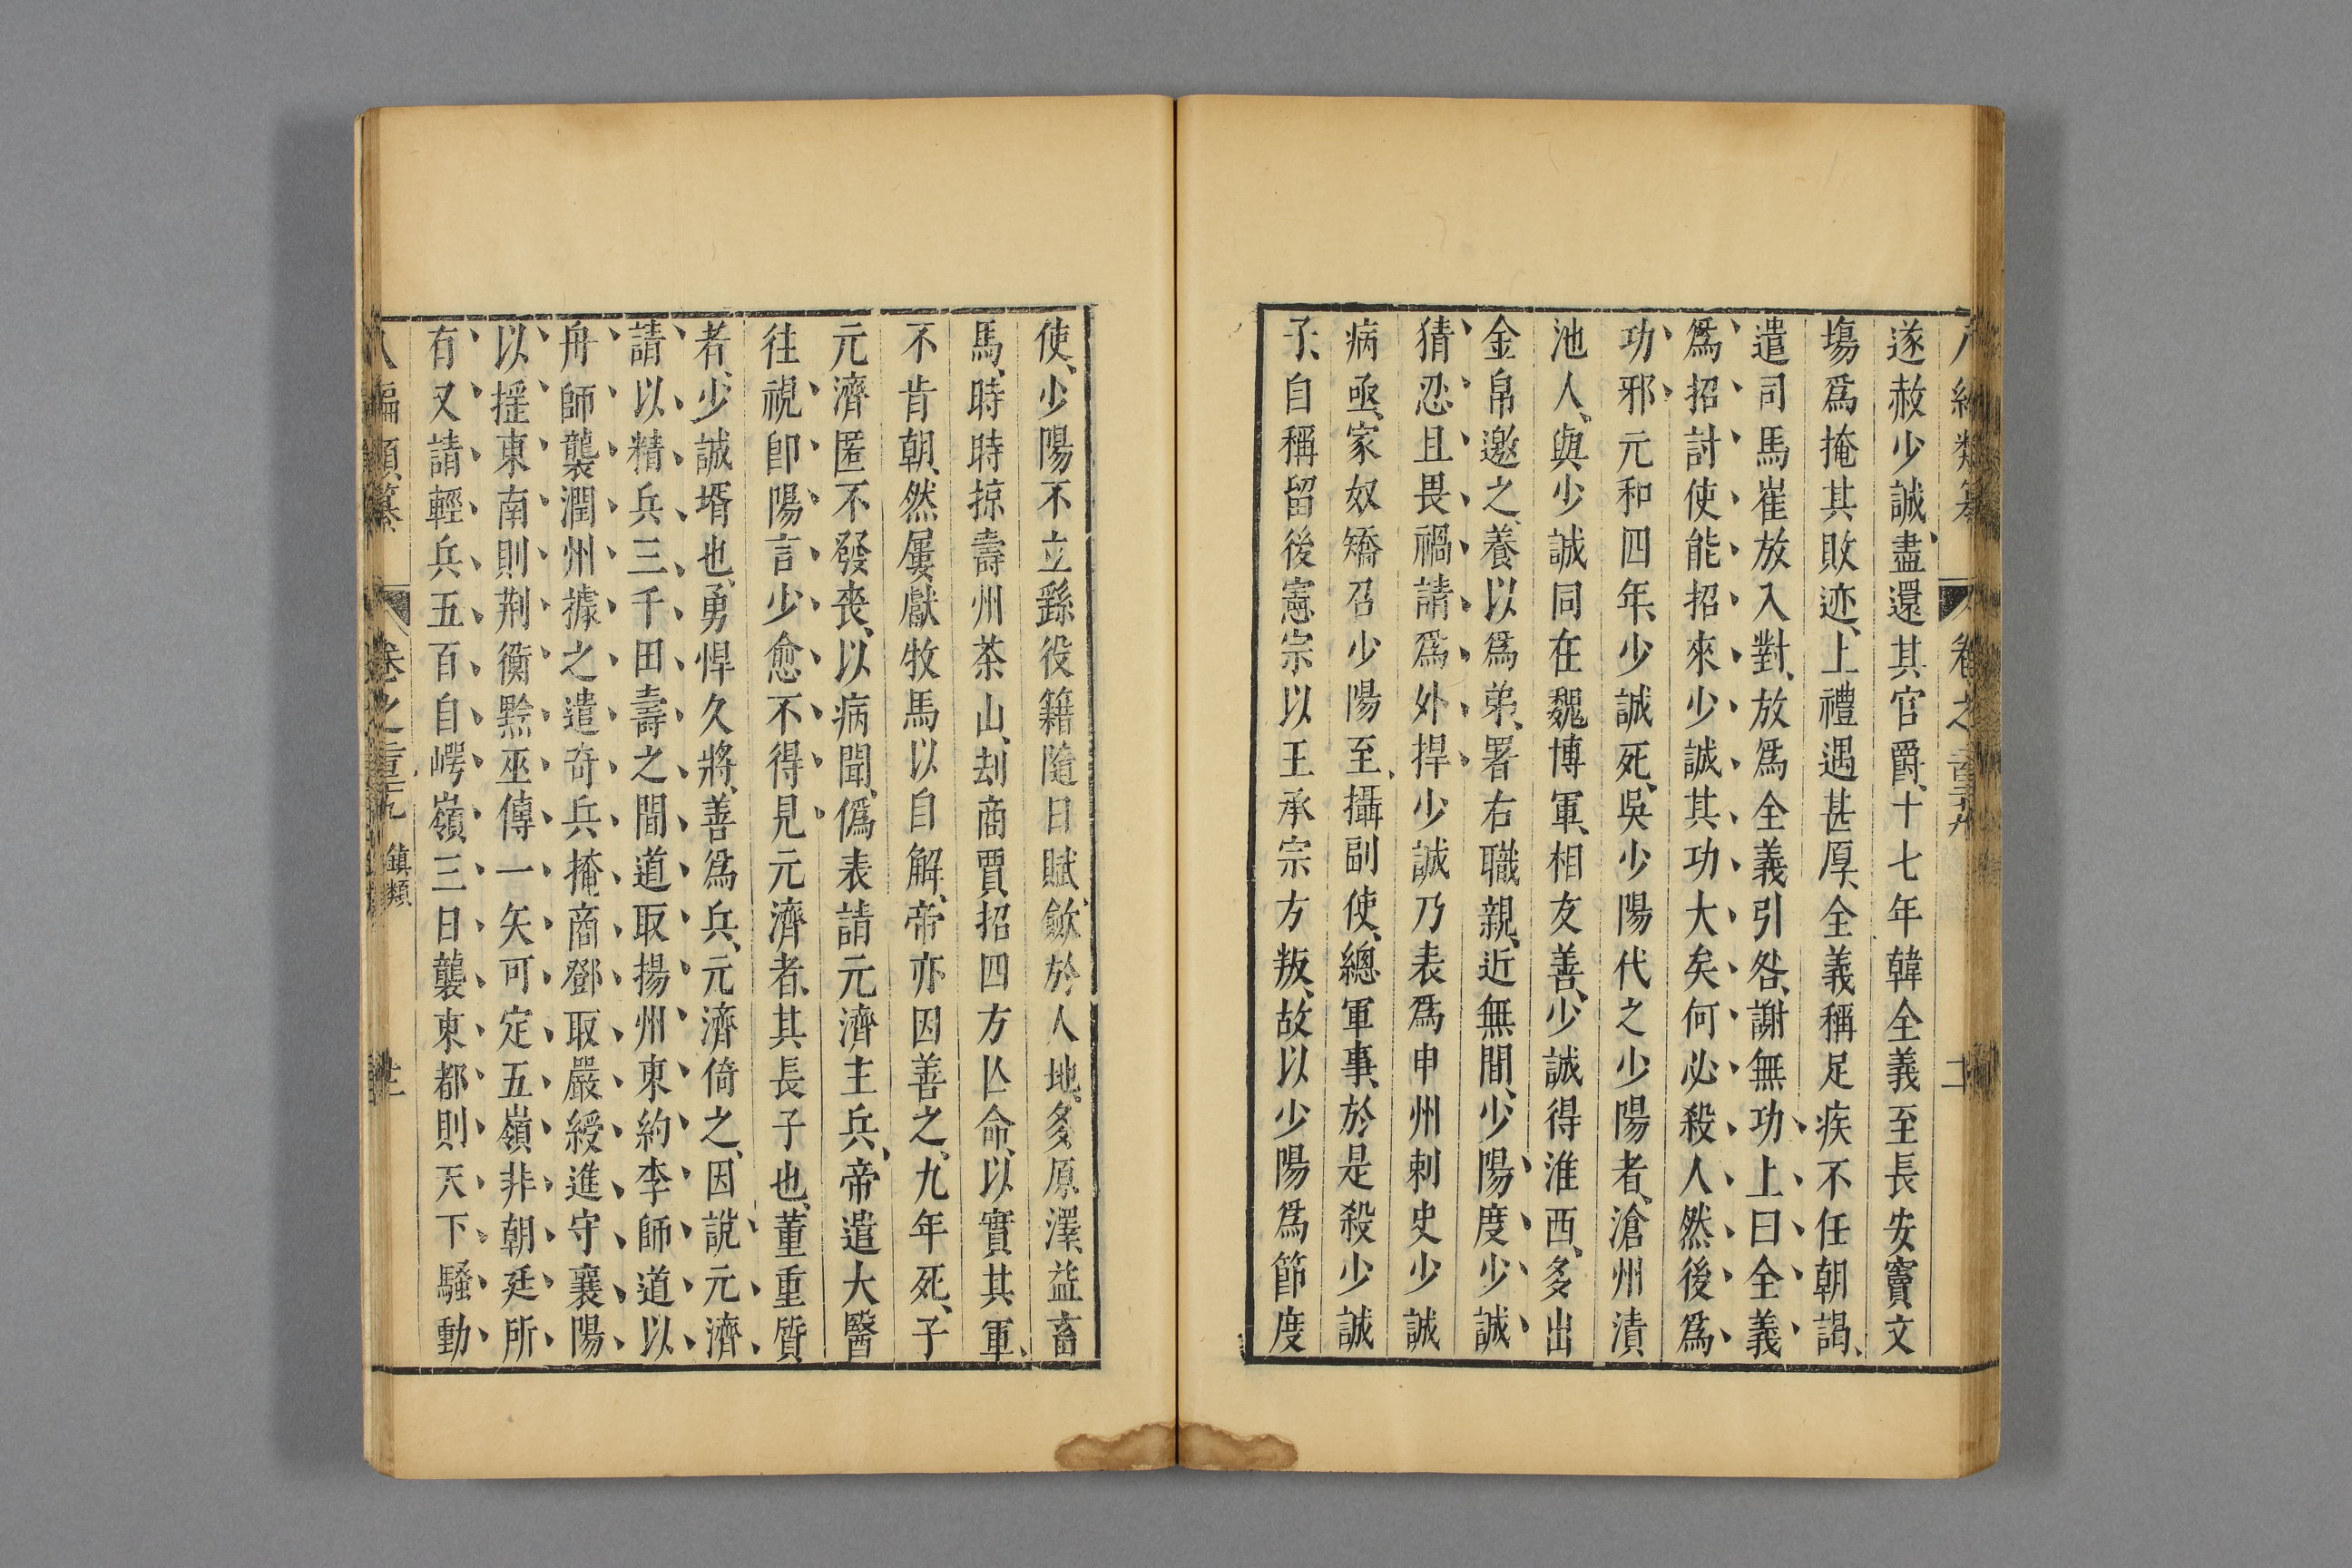 遂赦少誠、盡還其官爵、十七年韓全義至長安竇文
塲爲掩其敗迹、上禮遇甚厚、全義稱足疾不任朝謁、
遣司馬崔放入對、放爲全義引咎、謝無功上曰全義
爲招討使能招來少誠其功大矣何必殺人然後爲
功邪元和四年、少誠死、吳少陽代之少陽者、滄州淸
池人、與少誠同在魏博軍、相友善、少誠得淮西、多出
金帛邀之、養以爲弟、署右職親、近無間、少陽度少誠
猜忍且畏禍請爲外捍少誠乃表爲申州刺史少誠
病亟、家奴矯召少陽至、攝副使、總軍事、於是殺少誠
子、自稱留後憲宗以王承宗方叛、故以少陽爲節度
使、少陽不立繇役籍隨日賦、歛於人地、多原澤、益畜
馬、時時掠壽州茶山、刦商賈、招四方亾命、以實其軍、
不肯朝、然屢獻牧馬以自解、帝亦因善之、九年死、子
元濟匿不發喪、以病聞、僞表請元濟主兵、帝遣大醫
往視卽陽言少愈不得見元濟者、其長子也、董重質
者、少誠壻也、勇悍久將、善爲兵、元濟倚之、因說元濟
請以精兵三千田壽之間道取揚州東約李師道以
舟師襲潤州據之遣奇兵掩商鄧取嚴綬進守襄陽
以搖東南則荆衡黔巫傳一矢可定五嶺非朝廷所
有又請輕兵五百自崿嶺三日襲東都則天下騷動
八編類纂
卷之
鎮類